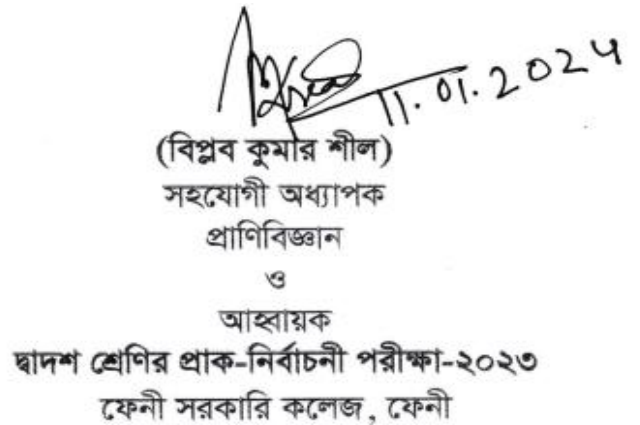 11.01.2024
(বিপ্লব কুমার শীল)
সহযোগী অধ্যাপক
প্রাণিবিজ্ঞান
ও
আহ্বায়ক
দ্বাদশ শ্রেণির প্রাক-নির্বাচনী পরীক্ষা-২০২৩
ফেনী সরকারি কলেজ, ফেনী